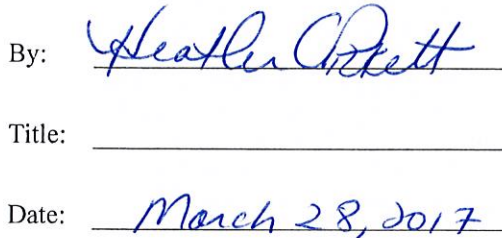 By: Heather
Title:
Date: March 28, 2017